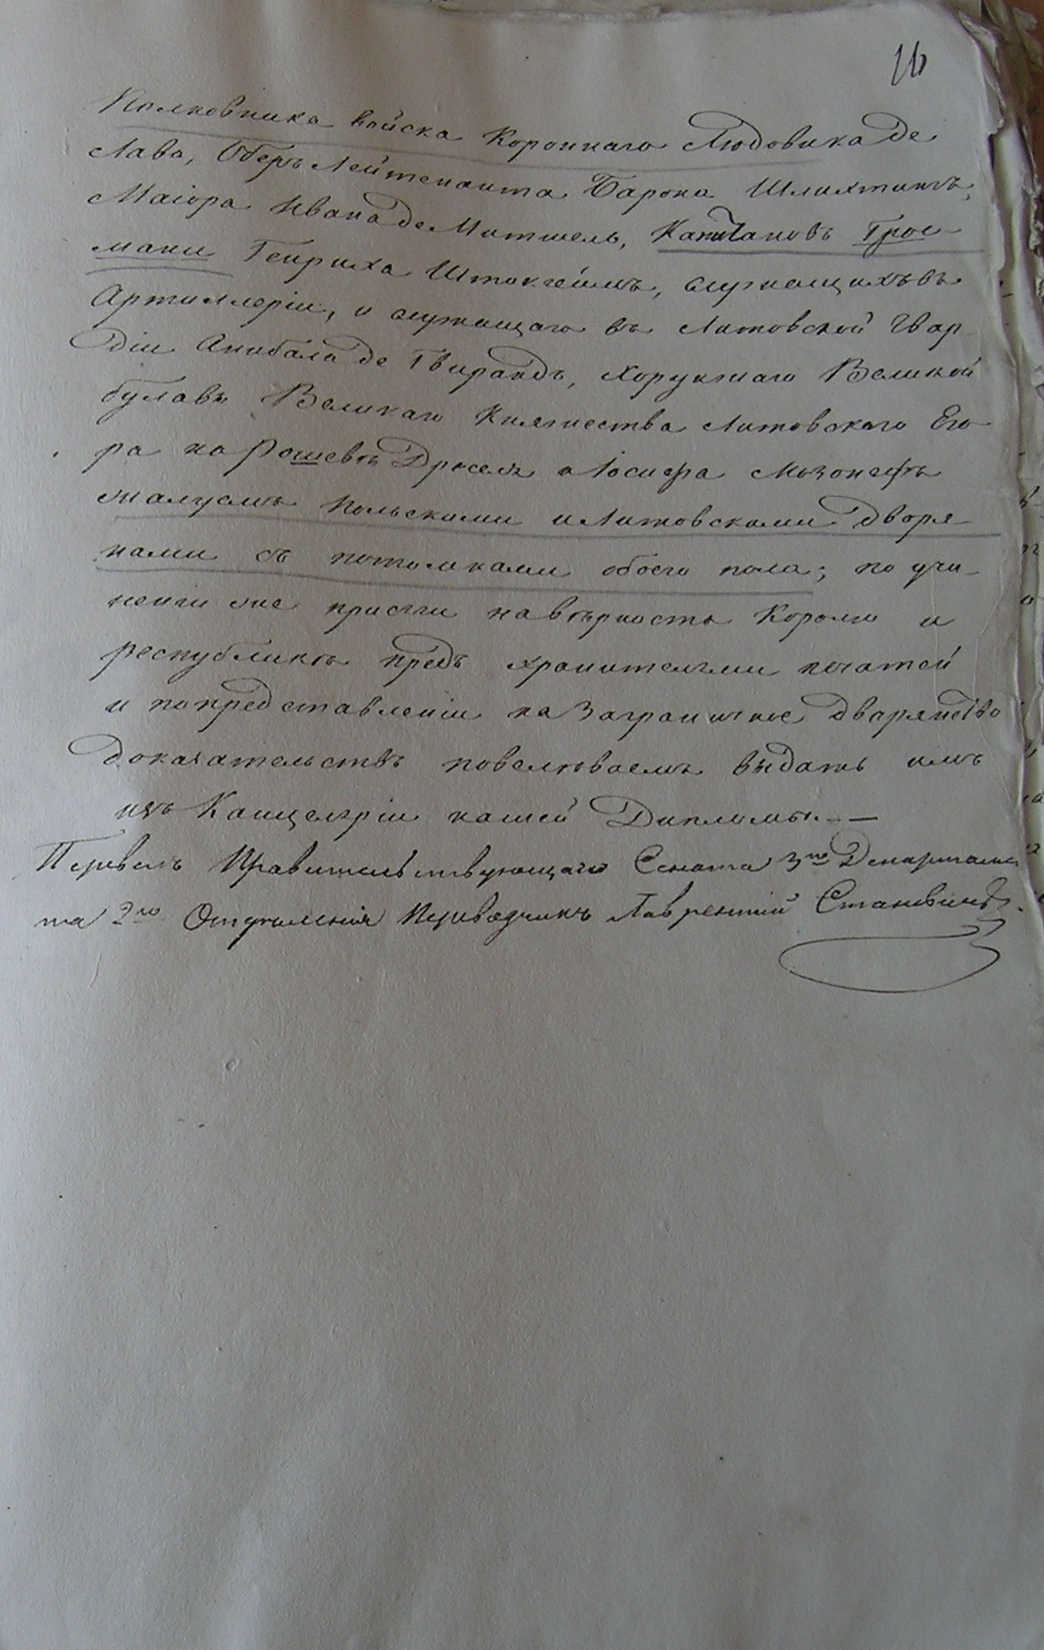 16
Полковника войска Короннаго Людовика де
Лаво, Оберъ Лейтенанта Барона Шлихтингъ,
Маіора Ивана де Митшель, Капитановъ Грос-
мани Генриха Штокгеймъ, служащихъ въ
Артиллеріи, и служащаго въ Литовской Гвар
діи Анибала де Гвирандъ, Хорунжаго Великой
булавы Великаго Княжества Литовскаго Его
ра на Рошевѣ Дросея и Іосифа
жалуемъ Польскими и Литовскими дворя-
нами съ потомками обоего пола; по учи-
неніи же присяги на вѣрность Королю и
республикѣ предъ хранителями печатей
и по представленіи на заграничное дворянство
доказательствъ повелѣваемъ выдать имъ
изъ Канцеляріи нашей Дипломы. —
Перевелъ Правительствующаго Сената 3го Департамен
та 2го Отдѣленія Переводчикъ Лаврентій Становичъ.